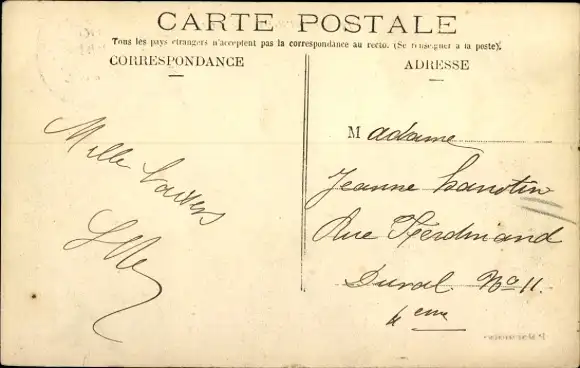 CARTE POSTALE
Tous les pays étrangers n'acceptent pas la correspondance au recto. (Se renseigner à la poste).
CORRESPONDANCE
ADRESSE
Mille baisers
Madame
Jeanne
Rue Ferdinand
Duval No 11.
4eme